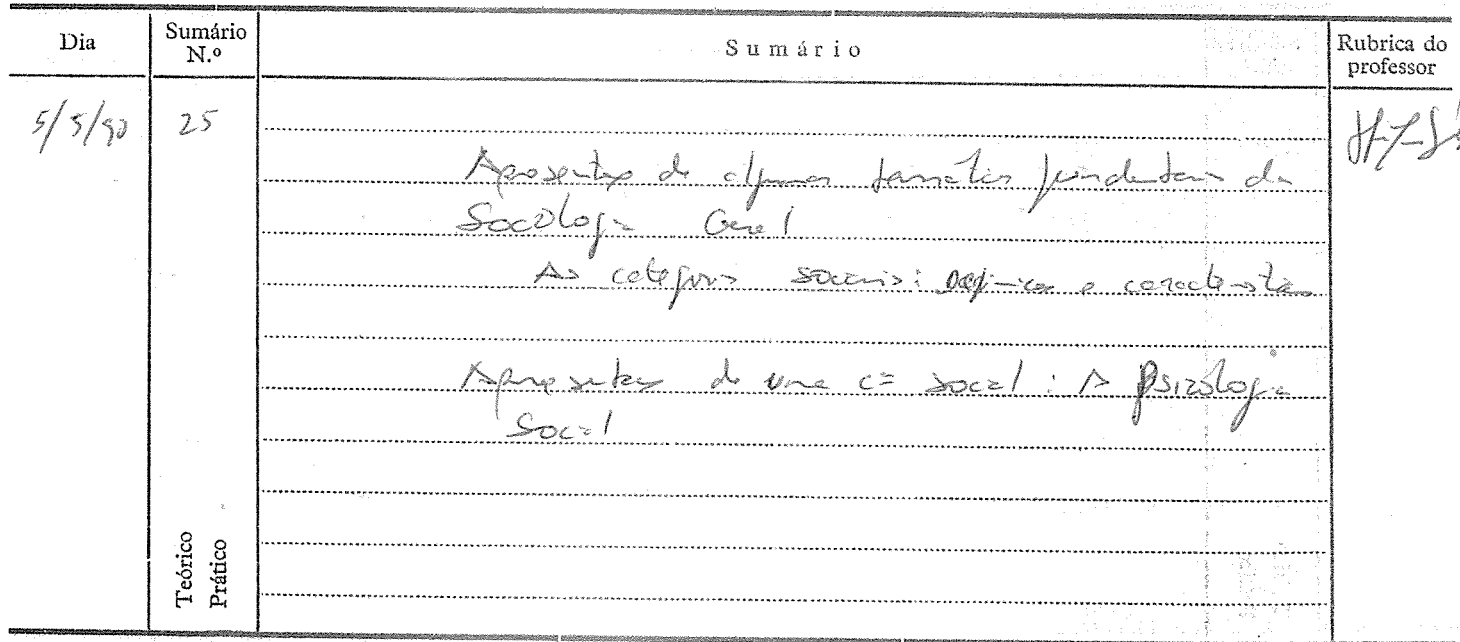 Dia
Sumário N.º
Sumário
Rubrica do professor
5/5/90
25
Apresentação de algumas temáticas fundamentais da
Sociologia Geral
As categorias sociais: definição e características
Apresentação de uma cª social: A Psicologia
Social
Teórico
Prático